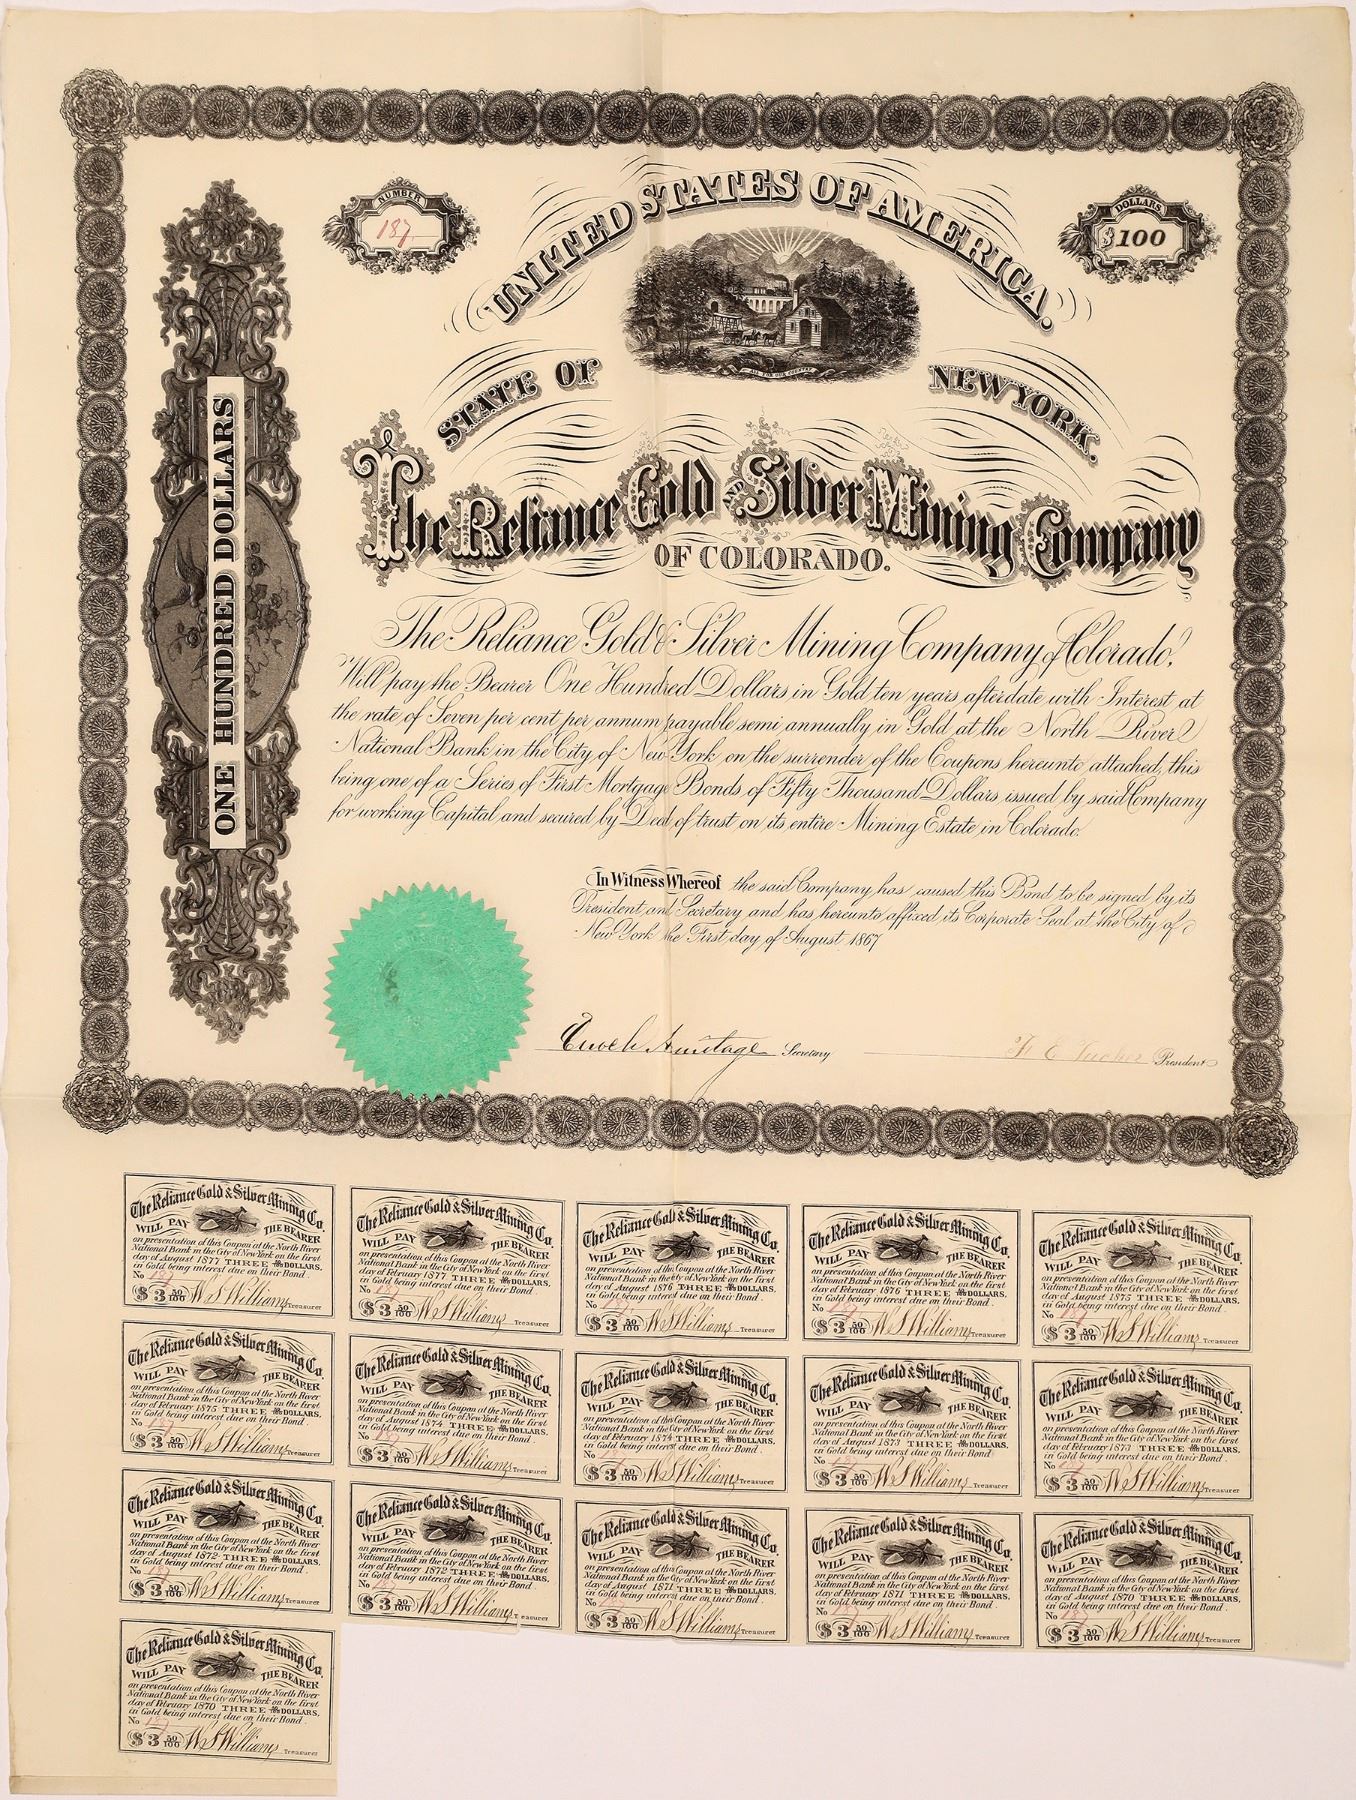 NUMBER
187
UNITED STATES OF AMERICA.
DOLLARS
$100
ALL FOR OUR COUNTRY
STATE OF NEW YORK.
The Reliance Gold AND Silver Mining Company
OF COLORADO.
ONE HUNDRED DOLLARS
The Reliance Gold & Silver Mining Company of Colorado,
Will pay the Bearer One Hundred Dollars in Gold ten years after date with Interest at
the rate of Seven per cent per annum payable semi annually in Gold at the North River
National Bank in the City of New York on the surrender of the Coupons hereunto attached, this
being one of a Series of First Mortgage Bonds of Fifty Thousand Dollars issued by said Company
for working Capital and secured by Deed of trust on its entire Mining Estate in Colorado.
In Witness Whereof the said Company has caused this Bond to be signed by its
President and Secretary and has hereunto affixed its Corporate Seal at the City of
New York the First day of August 1867
Enoch Armitage Secretary
F E Tucker President
The Reliance Gold & Silver Mining Co.
WILL PAY THE BEARER
on presentation of this Coupon at the North River
National Bank in the City of New York on the first
day of August 1877 THREE 50/100 DOLLARS,
in Gold being interest due on their Bond.
No 187
$3 50/100 W S Williams Treasurer
The Reliance Gold & Silver Mining Co.
WILL PAY THE BEARER
on presentation of this Coupon at the North River
National Bank in the City of New York on the first
day of February 1877 THREE 50/100 DOLLARS,
in Gold being interest due on their Bond.
No 187
$3 50/100 W S Williams Treasurer
The Reliance Gold & Silver Mining Co.
WILL PAY THE BEARER
on presentation of this Coupon at the North River
National Bank in the City of New York on the first
day of August 1876 THREE 50/100 DOLLARS,
in Gold being interest due on their Bond.
No 187
$3 50/100 W S Williams Treasurer
The Reliance Gold & Silver Mining Co.
WILL PAY THE BEARER
on presentation of this Coupon at the North River
National Bank in the City of New York on the first
day of February 1876 THREE 50/100 DOLLARS,
in Gold being interest due on their Bond.
No 187
$3 50/100 W S Williams Treasurer
The Reliance Gold & Silver Mining Co.
WILL PAY THE BEARER
on presentation of this Coupon at the North River
National Bank in the City of New York on the first
day of August 1875 THREE 50/100 DOLLARS,
in Gold being interest due on their Bond.
No 187
$3 50/100 W S Williams Treasurer
The Reliance Gold & Silver Mining Co.
WILL PAY THE BEARER
on presentation of this Coupon at the North River
National Bank in the City of New York on the first
day of February 1875 THREE 50/100 DOLLARS,
in Gold being interest due on their Bond.
No 187
$3 50/100 W S Williams Treasurer
The Reliance Gold & Silver Mining Co.
WILL PAY THE BEARER
on presentation of this Coupon at the North River
National Bank in the City of New York on the first
day of August 1874 THREE 50/100 DOLLARS,
in Gold being interest due on their Bond.
No 187
$3 50/100 W S Williams Treasurer
The Reliance Gold & Silver Mining Co.
WILL PAY THE BEARER
on presentation of this Coupon at the North River
National Bank in the City of New York on the first
day of February 1874 THREE 50/100 DOLLARS,
in Gold being interest due on their Bond.
No
$3 50/100 W S Williams Treasurer
The Reliance Gold & Silver Mining Co.
WILL PAY THE BEARER
on presentation of this Coupon at the North River
National Bank in the City of New York on the first
day of August 1873 THREE 50/100 DOLLARS,
in Gold being interest due on their Bond.
No 187
$3 50/100 W S Williams Treasurer
The Reliance Gold & Silver Mining Co.
WILL PAY THE BEARER
on presentation of this Coupon at the North River
National Bank in the City of New York on the first
day of February 1873 THREE 50/100 DOLLARS,
in Gold being interest due on their Bond.
No 187
$3 50/100 W S Williams Treasurer
The Reliance Gold & Silver Mining Co.
WILL PAY THE BEARER
on presentation of this Coupon at the North River
National Bank in the City of New York on the first
day of August 1872 THREE 50/100 DOLLARS,
in Gold being interest due on their Bond.
No 187
$3 50/100 W S Williams Treasurer
The Reliance Gold & Silver Mining Co.
WILL PAY THE BEARER
on presentation of this Coupon at the North River
National Bank in the City of New York on the first
day of February 1872 THREE 50/100 DOLLARS,
in Gold being interest due on their Bond.
No 187
$3 50/100 W S Williams Treasurer
The Reliance Gold & Silver Mining Co.
WILL PAY THE BEARER
on presentation of this Coupon at the North River
National Bank in the City of New York on the first
day of August 1871 THREE 50/100 DOLLARS,
in Gold being interest due on their Bond.
No 187
$3 50/100 W S Williams Treasurer
The Reliance Gold & Silver Mining Co.
WILL PAY THE BEARER
on presentation of this Coupon at the North River
National Bank in the City of New York on the first
day of February 1871 THREE 50/100 DOLLARS,
in Gold being interest due on their Bond.
No 187
$3 50/100 W S Williams Treasurer
The Reliance Gold & Silver Mining Co.
WILL PAY THE BEARER
on presentation of this Coupon at the North River
National Bank in the City of New York on the first
day of August 1870 THREE 50/100 DOLLARS,
in Gold being interest due on their Bond.
No 187
$3 50/100 W S Williams Treasurer
The Reliance Gold & Silver Mining Co.
WILL PAY THE BEARER
on presentation of this Coupon at the North River
National Bank in the City of New York on the first
day of February 1870 THREE 50/100 DOLLARS,
in Gold being interest due on their Bond.
No 187
$3 50/100 W S Williams Treasurer